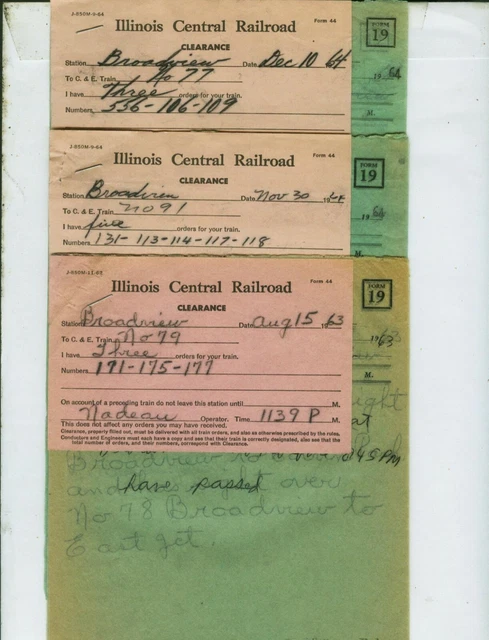 J-850M-9-64
Form 44
Illinois Central Railroad
FORM 19
CLEARANCE
Station Broadview Date Dec 10 64
To C. & E. Train No 77
19 64
I have Three orders for your train.
Numbers 556-106-109
M.
J-850M-9-64
Form 44
Illinois Central Railroad
FORM 19
CLEARANCE
Station Broadview Date Nov 30 1964
To C. & E. Train No 91
19 64
I have five orders for your train.
Numbers 131-113-114-117-118
M.
J-850M-11-62
Form 44
Illinois Central Railroad
FORM 19
CLEARANCE
Station Broadview Date Aug 15 1963
To C. & E. Train No 79
1963
I have Three orders for your train.
Numbers 171-175-177
M.
On account of a preceding train do not leave this station until M.
Nadeau Operator. Time 1139 P M.
This does not affect any orders you may have received.
Clearance, properly filled out, must be delivered with all train orders, and also as otherwise prescribed by the rules.
Conductors and Engineers must each have a copy and see that their train is correctly designated, also see that the total number of orders, and their numbers, correspond with Clearance.
right
at
Broadview 45 PM
and have passed right over
No 78 Broadview to
East Jct.